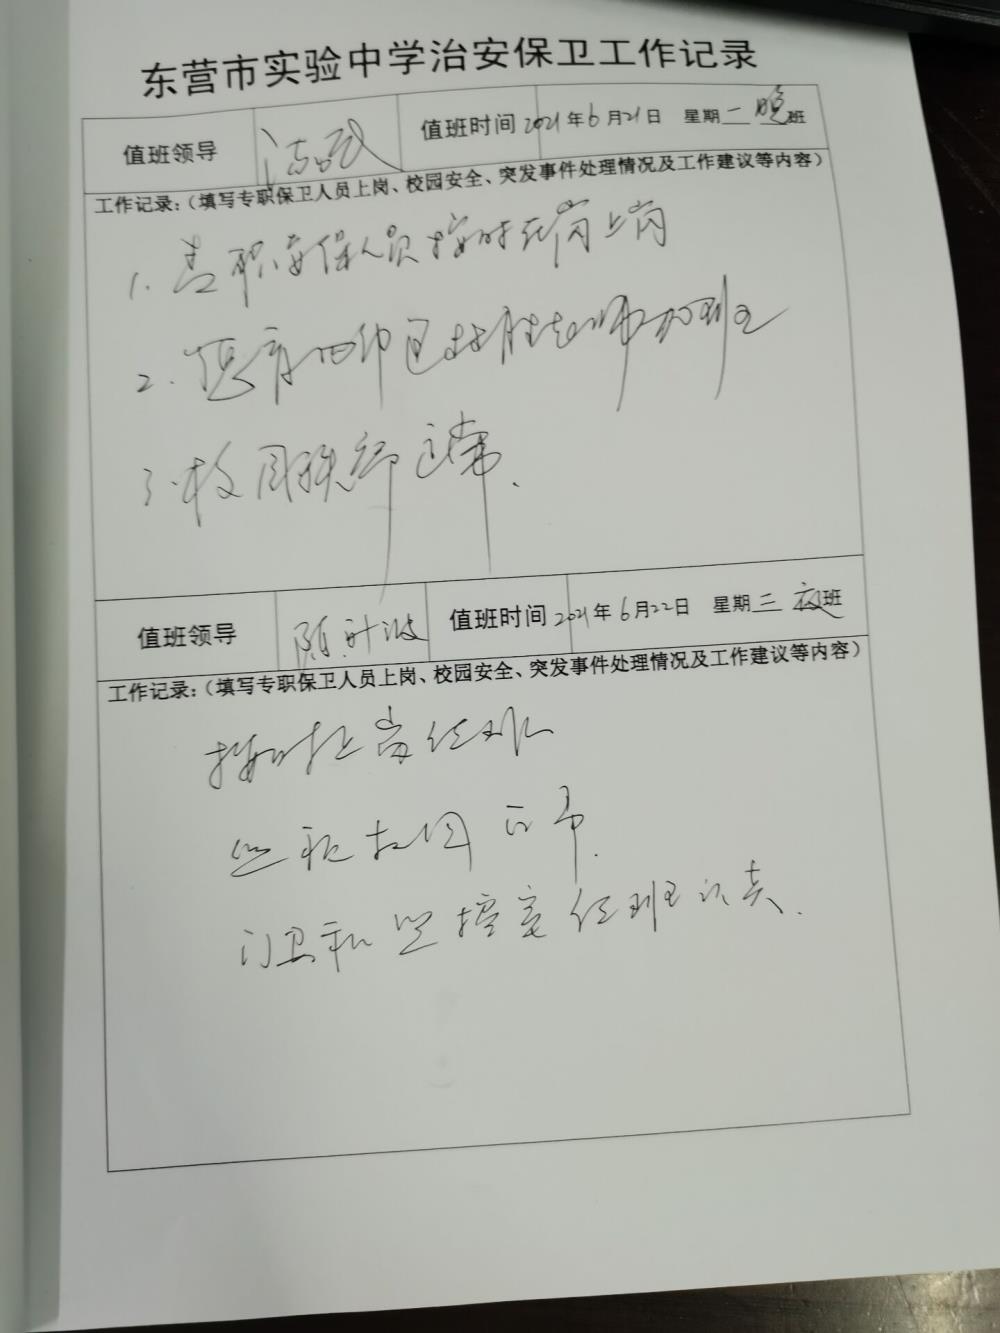 东营市实验中学治安保卫工作记录
值班领导 值班时间 2021年6月21日 星期一 晚班
工作记录：（填写专职保卫人员上岗、校园安全、突发事件处理情况及工作建议等内容）
1. 专职安保人员按时在岗上岗
2. 老师加班
3. 校园秩序正常.
值班领导 值班时间 2021年6月22日 星期三 夜班
工作记录：（填写专职保卫人员上岗、校园安全、突发事件处理情况及工作建议等内容）
按时上岗值班
巡视校园正常.
门卫和监控室值班认真.